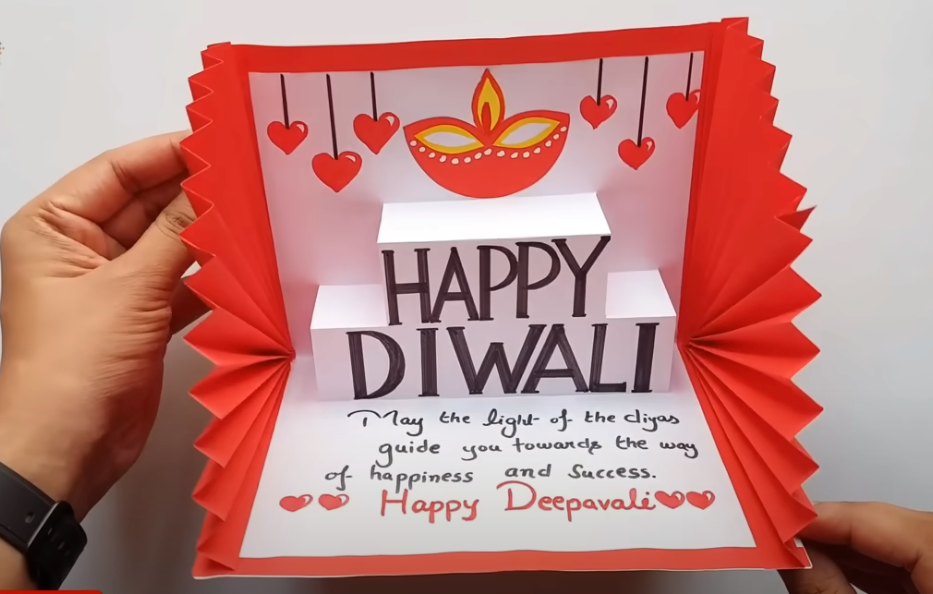 HAPPY
DIWALI
May the light of the diyas
guide you towards the way
of happiness and Success.
Happy Deepavali